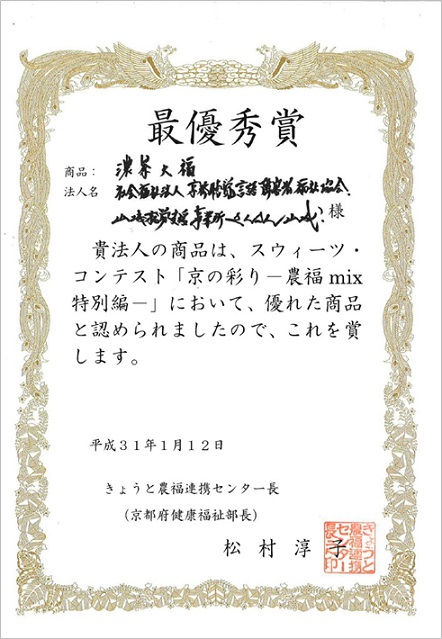 最優秀賞
商品： 濃茶大福
法人名 社会福祉法人 京都聴覚言語障害者福祉協会
山城就労支援事業所 さんさん山城 様
貴法人の商品は、スウィーツ・
コンテスト「京の彩り－農福 mix
特別編－」において、優れた商品
と認められましたので、これを賞
します。
平成３１年１月１２日
きょうと農福連携センター長
（京都府健康福祉部長）
松村淳子
きょうと
農福連携
センター
長之印